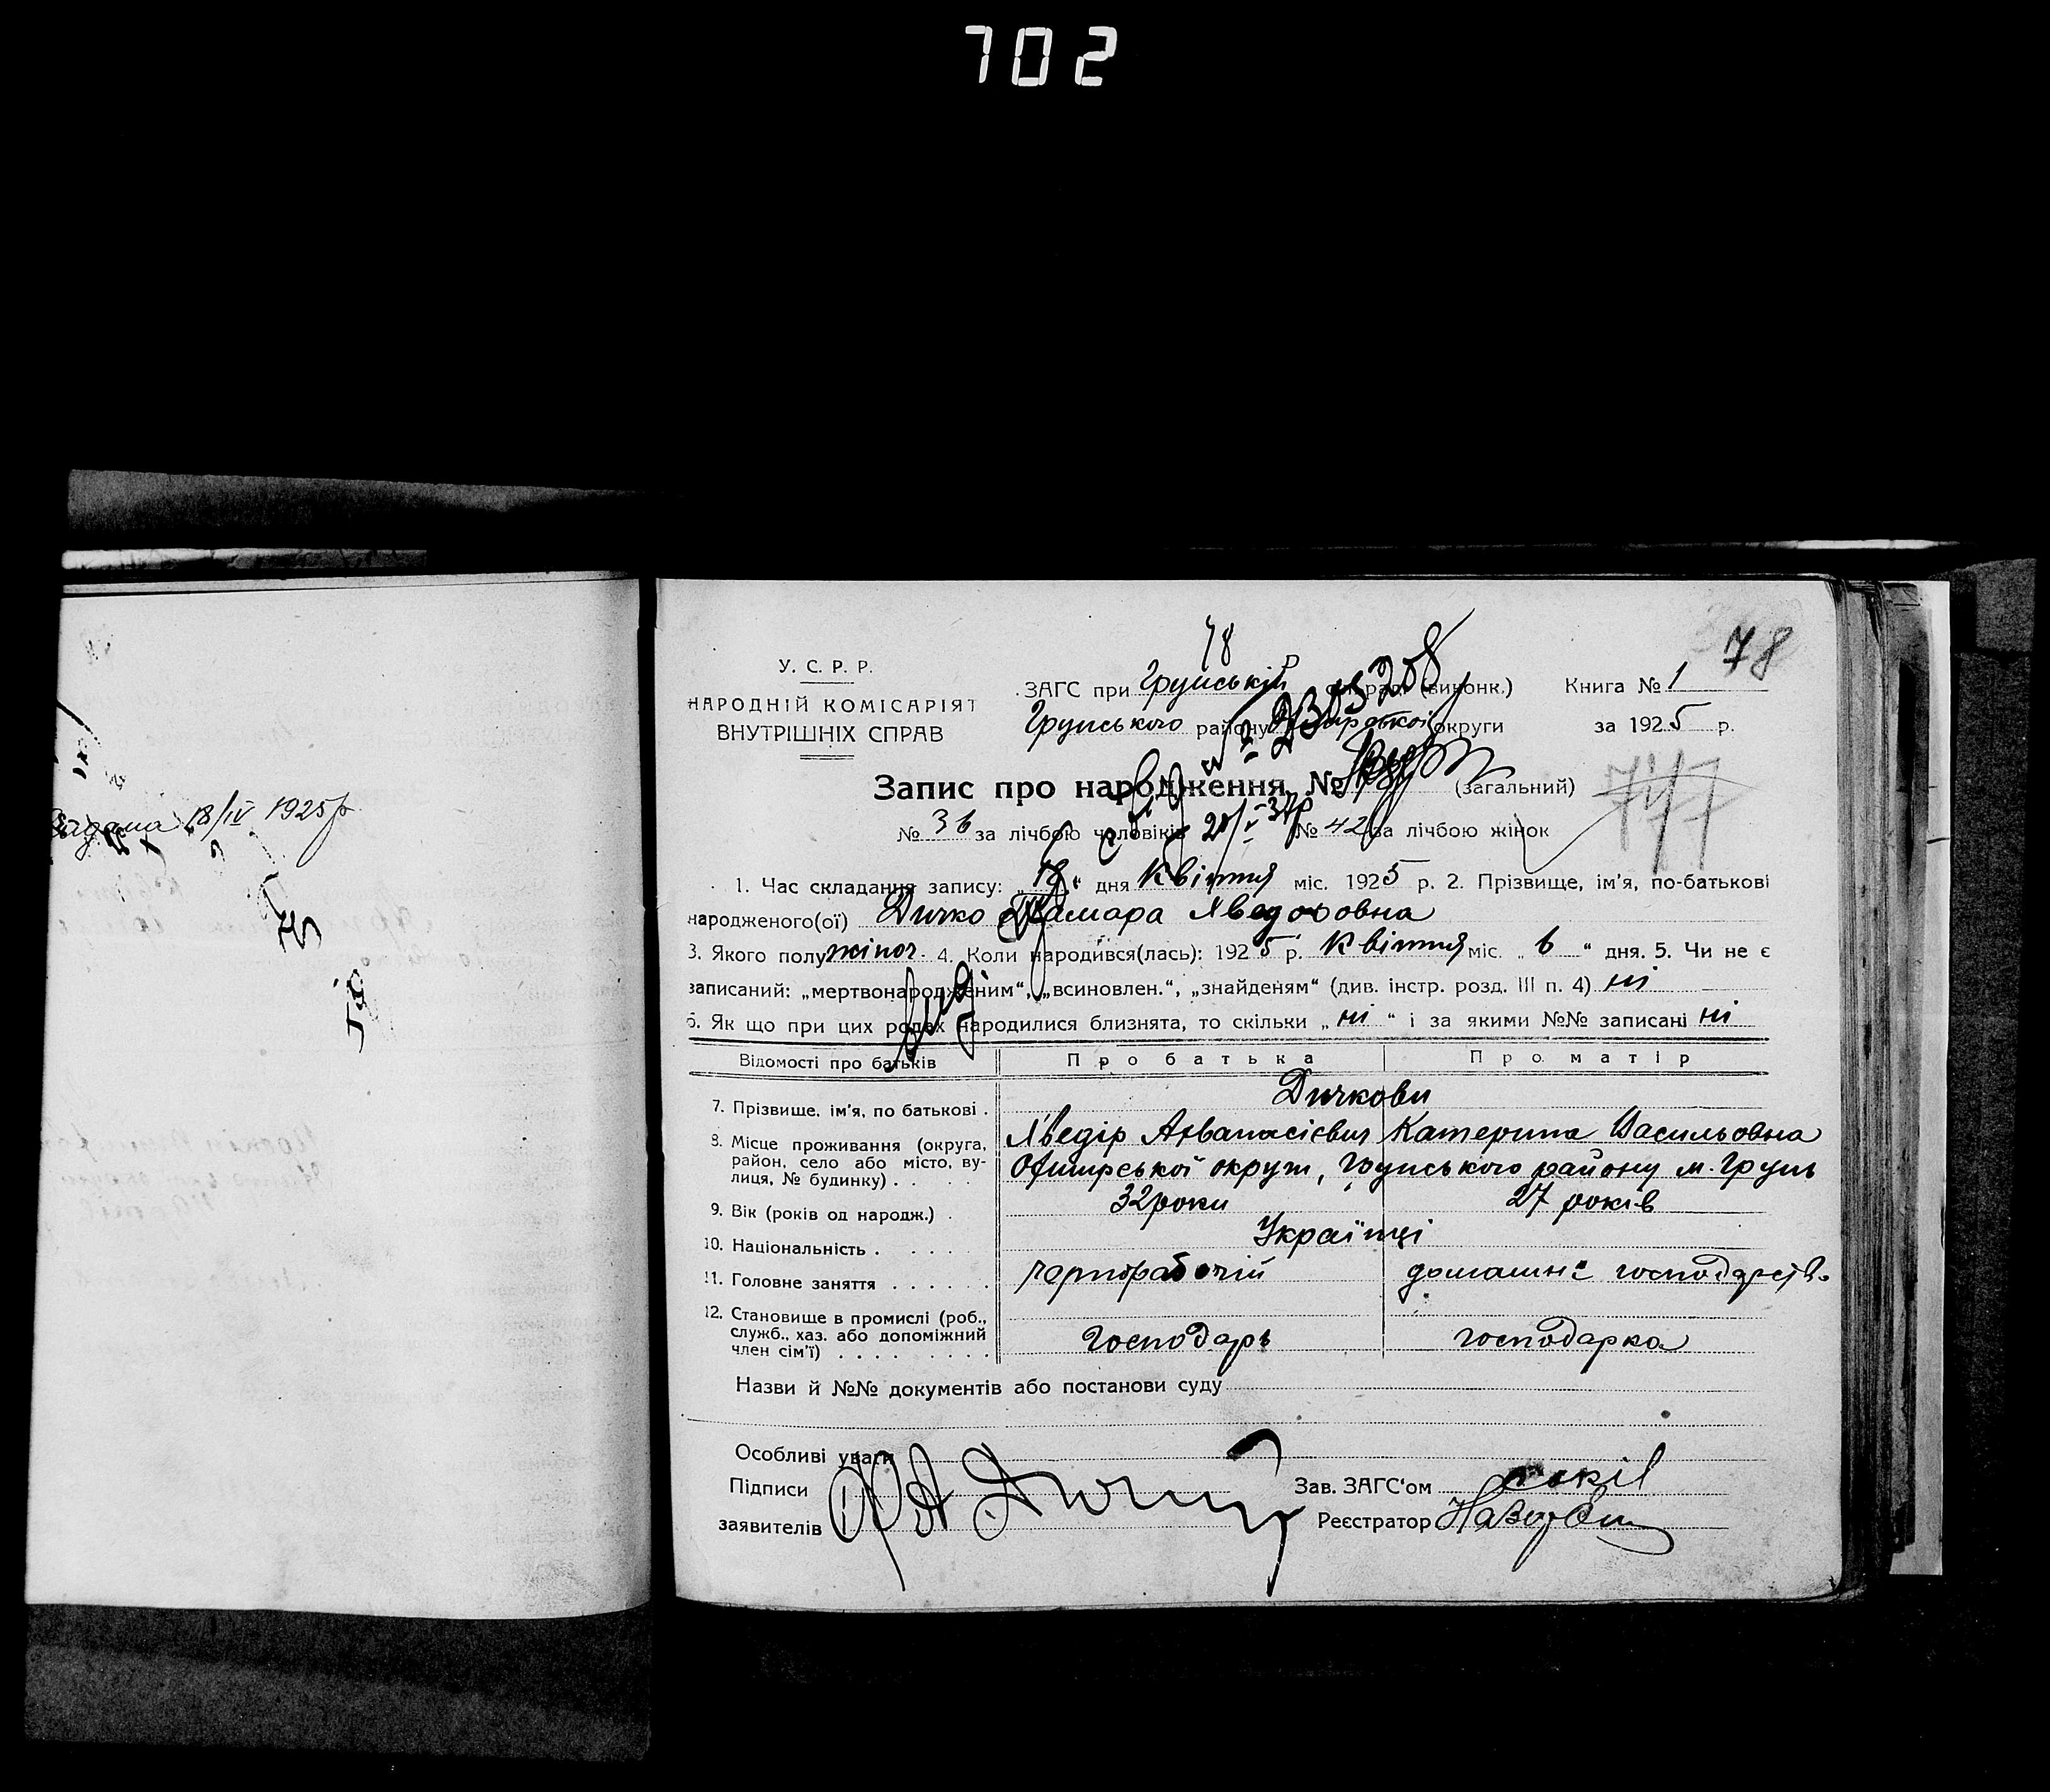 702
78
78
У. С. Р. Р.
НАРОДНІЙ КОМІСАРІЯТ
ВНУТРІШНІХ СПРАВ
ЗАГС при Грунській раді (виконк.) Книга № 1
Грунського району округи за 1925 р.
Запис про народження № (загальний)
№ 36 за лічбою чоловіків № 42 за лічбою жінок
Видана 18/IV 1925 р
1. Час складання запису: „18“ дня Квітня міс. 1925 р. 2. Прізвище, ім'я, по-батькові
народженого(ої) Дичко Тамара Хведоровна
3. Якого полу жіноч. 4. Коли народився(лась): 1925 р. Квітня міс. „6“ дня. 5. Чи не є
записаний: „мертвонародженим“, „всиновлен.“, „знайденям“ (див. інстр. розд. III п. 4) ні
6. Як що при цих родах народилися близнята, то скільки „ні“ і за якими №№ записані ні
Відомості про батьків Про батька Про матір
Дичкови
7. Прізвище, ім'я, по батькові .
Хведір Ахванасієвич Катерина Васильовна
8. Місце проживання (округа,
район, село або місто, ву-
лиця, № будинку) . .
Охтирської округи, Грунського району м. Грунь
9. Вік (років од народж.) . 32 роки 27 років
10. Національність . . . . . Українці
11. Головне заняття . . . . . . чорноробочій домашнє господарств.
12. Становище в промислі (роб.,
служб., хаз. або допоміжний
член сім'ї) . . . . . . . . .
Господарь господарка
Назви й №№ документів або постанови суду
Особливі уваги
Підписи
заявителів
Зав. ЗАГС'ом
Реєстратор